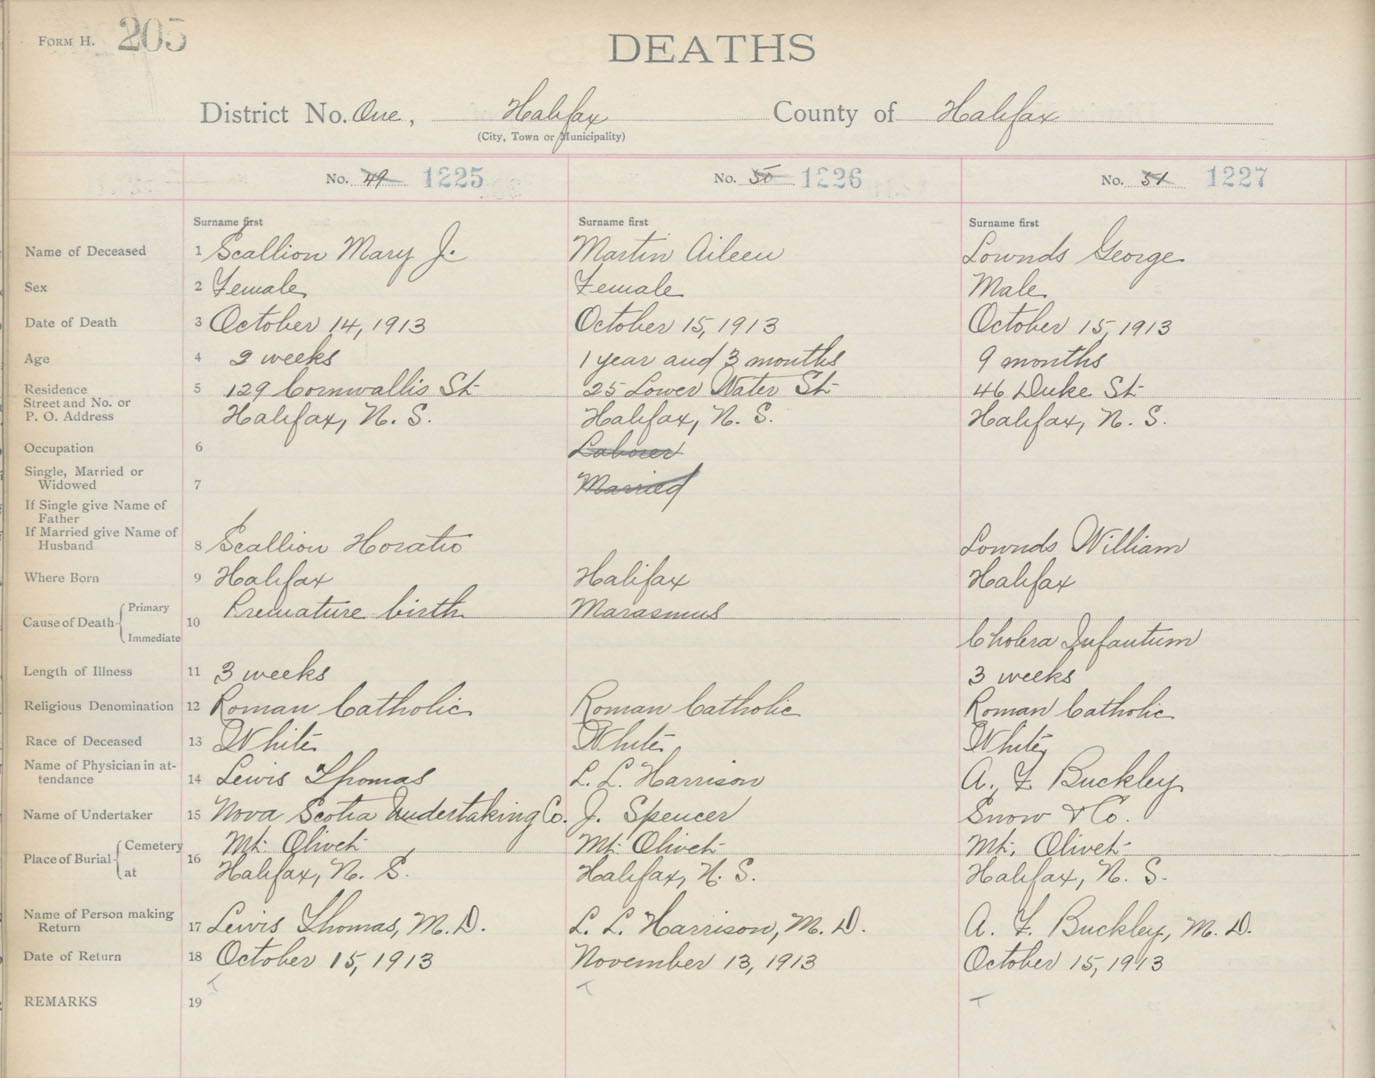 FORM H. 205
DEATHS
District No. One, Halifax County of Halifax
(City, Town or Municipality)
No. 49 1225 No. 50 1226 No. 51 1227
Surname first Surname first Surname first
Name of Deceased 1 Scallion Mary J. Martin Aileen Lownds George
Sex 2 Female Female Male
Date of Death 3 October 14, 1913 October 15, 1913 October 15, 1913
Age 4 2 weeks 1 year and 3 months 9 months
Residence 5 129 Cornwallis St 25 Lower Water St 46 Duke St
Street and No. or
P. O. Address Halifax, N. S. Halifax, N. S. Halifax, N. S.
Occupation 6 Laborer
Single, Married or
Widowed 7 Married
If Single give Name of
Father
If Married give Name of
Husband 8 Scallion Horatio Lownds William
Where Born 9 Halifax Halifax Halifax
Cause of Death Primary 10 Premature birth Marasmus
Immediate Cholera Infantum
Length of Illness 11 3 weeks 3 weeks
Religious Denomination 12 Roman Catholic Roman Catholic Roman Catholic
Race of Deceased 13 White White White
Name of Physician in at-
tendance 14 Lewis Thomas L. L. Harrison A. F. Buckley
Name of Undertaker 15 Nova Scotia Undertaking Co. J. Spencer Snow & Co.
Place of Burial Cemetery 16 Mt. Olivet Mt. Olivet Mt. Olivet
at Halifax, N. S. Halifax, N. S. Halifax, N. S.
Name of Person making
Return 17 Lewis Thomas, M. D. L. L. Harrison, M. D. A. F. Buckley, M. D.
Date of Return 18 October 15, 1913 November 13, 1913 October 15, 1913
REMARKS 19